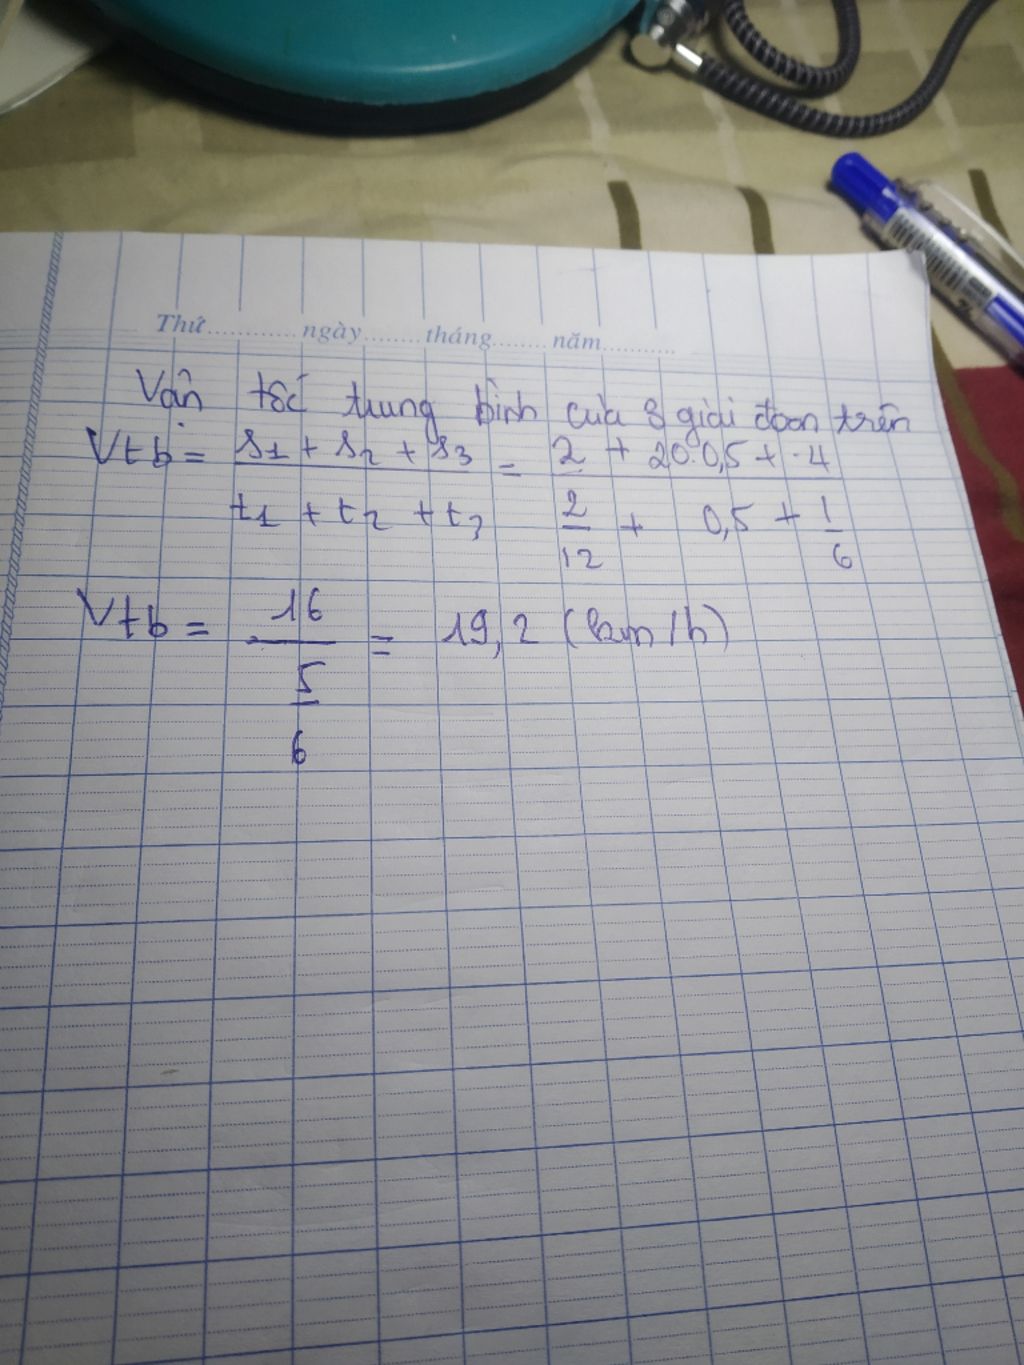 Thứ............ngày........tháng........năm...........
Vận tốc trung bình của 3 giai đoạn trên
Vtb = S1 + S2 + S3 / t1 + t2 + t3 = 2 + 20.0,5 + .4 / 2/12 + 0,5 + 1/6
Vtb = 16 / 5/6 = 19,2 (km/h)